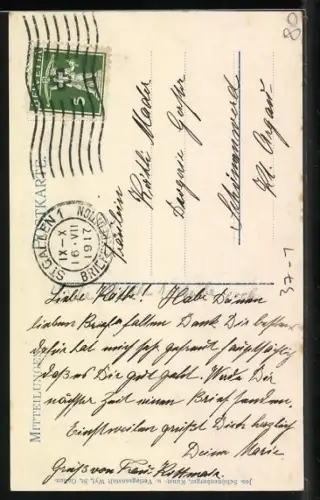 80
HELVETIA
5
ST. GALLEN 1
IX-X
16.VII
1917
BRIEF
POSTKARTE.
MITTEILUNGEN
Fräulein
Käthi Mader
Schönenwerd
Kt. Argau
37-1
Liebe Käthi! Habe Deinen
lieben Brief erhalten Dank Dir bestens
dafür hat mich sehr gefreut hauptsächlich
daß es Dir gut geht. Werde Dir
nächster Zeit einen Brief senden.
Einstweilen grüßt Dich herzlich
Deine Marie
Gruß von Frau
Jos. Schönenberger, Kunst- u. Verlagsanstalt Wyl, St. Gallen.